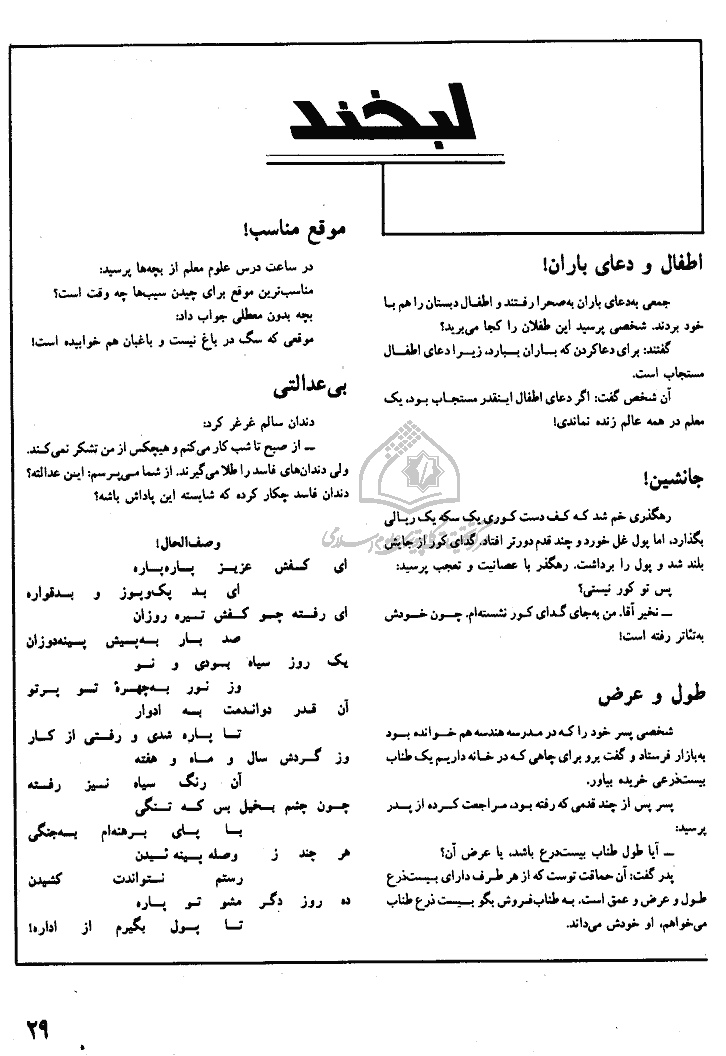 لبخند
اطفال و دعای باران!
جمعی به‌دعای باران به‌صحرا رفتند و اطفال دبستان را هم با
خود بردند. شخصی پرسید این طفلان را کجا می‌برید؟
گفتند: برای دعاکردن که باران ببارد، زیرا دعای اطفال
مستجاب است.
آن شخص گفت: اگر دعای اطفال اینقدر مستجاب بود، یک
معلم در همه عالم زنده نماندی!
جانشین!
رهگذری خم شد که کف دست کوری یک سکه یک ریالی
بگذارد، اما پول غل خورد و چند قدم دورتر افتاد. گدای کور از جایش
بلند شد و پول را برداشت. رهگذر با عصانیت و تعجب پرسید:
پس تو کور نیستی؟
ــ نخیر آقا. من به‌جای گدای کور نشسته‌ام. چون خودش
به‌تئاتر رفته است!
طول و عرض
شخصی پسر خود را که در مدرسه هندسه هم خوانده بود
به‌بازار فرستاد و گفت برو برای چاهی که در خانه داریم یک طناب
بیست‌ذرعی خریده بیاور.
پسر پس از چند قدمی که رفته بود، مراجعت کرده از پدر
پرسید:
ــ آیا طول طناب بیست‌درع باشد، یا عرض آن؟
پدر گفت: آن حماقت توست که از هر طرف دارای بیست‌ذرع
طول و عرض و عمق است. به طناب‌فروش بگو بیست ذرع طناب
می‌خواهم، او خودش می‌داند.
موقع مناسب!
در ساعت درس علوم معلم از بچه‌ها پرسید:
مناسب‌ترین موقع برای چیدن سیب‌ها چه وقت است؟
بچه بدون معطلی جواب داد:
موقعی که سگ در باغ نیست و باغبان هم خوابیده است!
بی‌عدالتی
دندان سالم غرغر کرد:
ــ از صبح تا شب کار می‌کنم و هیچکس از من تشکر نمی‌کند.
ولی دندان‌های فاسد را طلا می‌گیرند. از شما می‌پرسم: این عدالته؟
دندان فاسد چکار کرده که شایسته این پاداش باشه؟
وصف‌الحال!
ای کفش عزیز پاره‌پاره
ای بد پک‌وپوز و بدقواره
ای رفته چو کفش تیره روزان
صد بار به‌پیش پینه‌دوزان
یک روز سیاه بودی و نو
وز نور به‌چهرهٔ تو پرتو
آن قدر دواندمت به ادوار
تا پاره شدی و رفتی از کار
وز گردش سال و ماه و هفته
آن رنگ سیاه نیز رفته
چون چشم بخیل بس که تنگی
با پای برهنه‌ام به‌جنگی
هر چند ز وصله پینه ئیدن
رستم نتواندت کشیدن
ده روز دگر مشو تو پاره
تا پول بگیرم از اداره!
۲۹